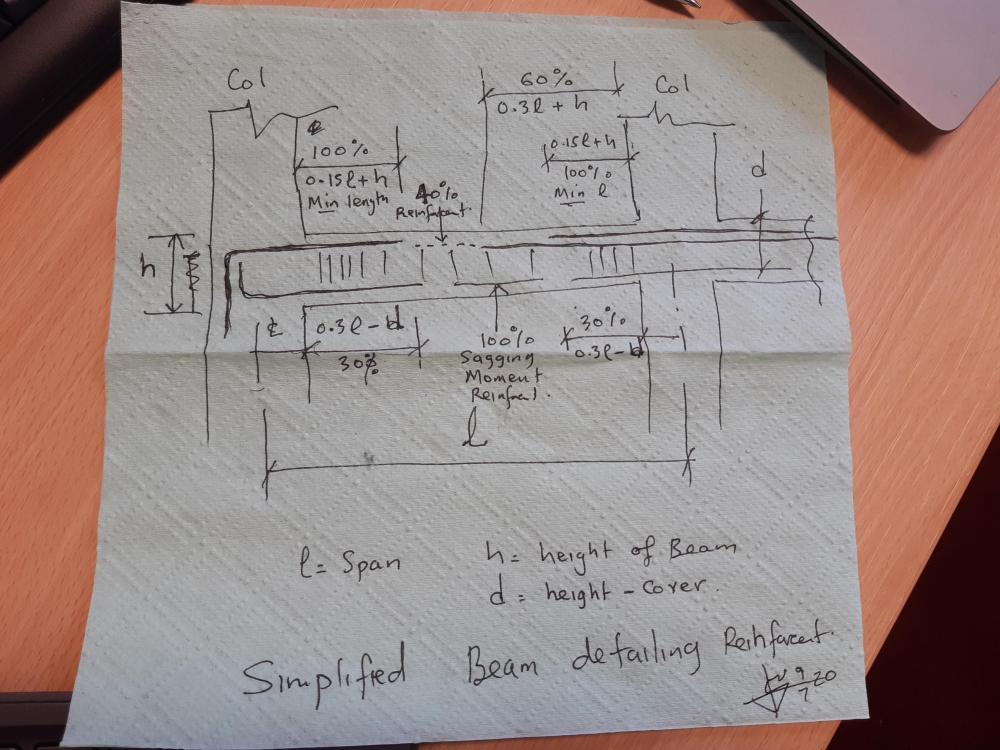 Col
60%
0.3l + h
Col
100%
0.15l + h
Min length
0.15l + h
100%
Min l
40%
Reinfacent.
d
h
℄
0.3l - d
30%
100%
Sagging
Moment
Reinfacent.
30%
0.3l - d
l
l = Span
h = height of Beam
d = height - Cover.
Simplified Beam detailing Reinfacent.
9/7 20